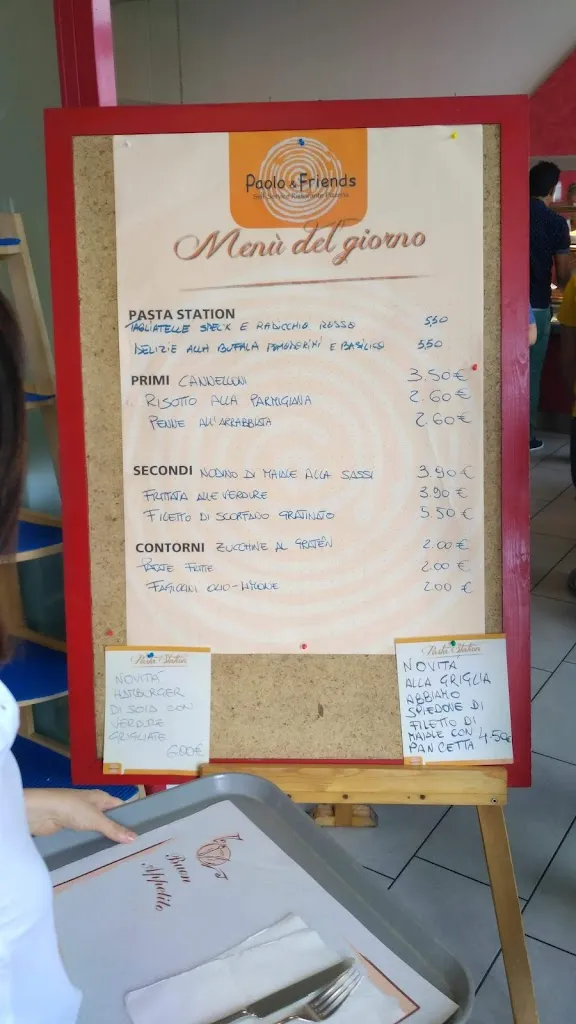 Paolo & Friends
Self Service Ristorante Pizzeria
Menù del giorno
PASTA STATION
TAGLIATELLE SPECK E RADICCHIO ROSSO 5,50
DELIZIE ALLA BUFALA POMODORINI E BASILICO 5,50
PRIMI CANNELLONI 3.50€
RISOTTO ALLA PARMIGIANA 2.60€
PENNE ALL'ARRABBIATA 2.60€
SECONDI NODINO DI MAIALE ALLA SASSI 3.90€
FRITTATA ALLE VERDURE 3.90€
FILETTO DI SCORFANO GRATINATO 5.50€
CONTORNI ZUCCHINE AL GRATÉN 2.00€
PATATE FRITTE 2.00€
FAGIOLINI OLIO-LIMONE 2.00€
Pasta Station
NOVITA'
HAMBURGER
DI SOIA CON
VERDURE
GRIGLIATE
6.00€
Pasta Station
NOVITA
ALLA GRIGLIA
ABBIAMO
SPIEDONE DI
FILETTO DI
MAIALE CON
PANCETTA 4.50€
Buon
Appetito